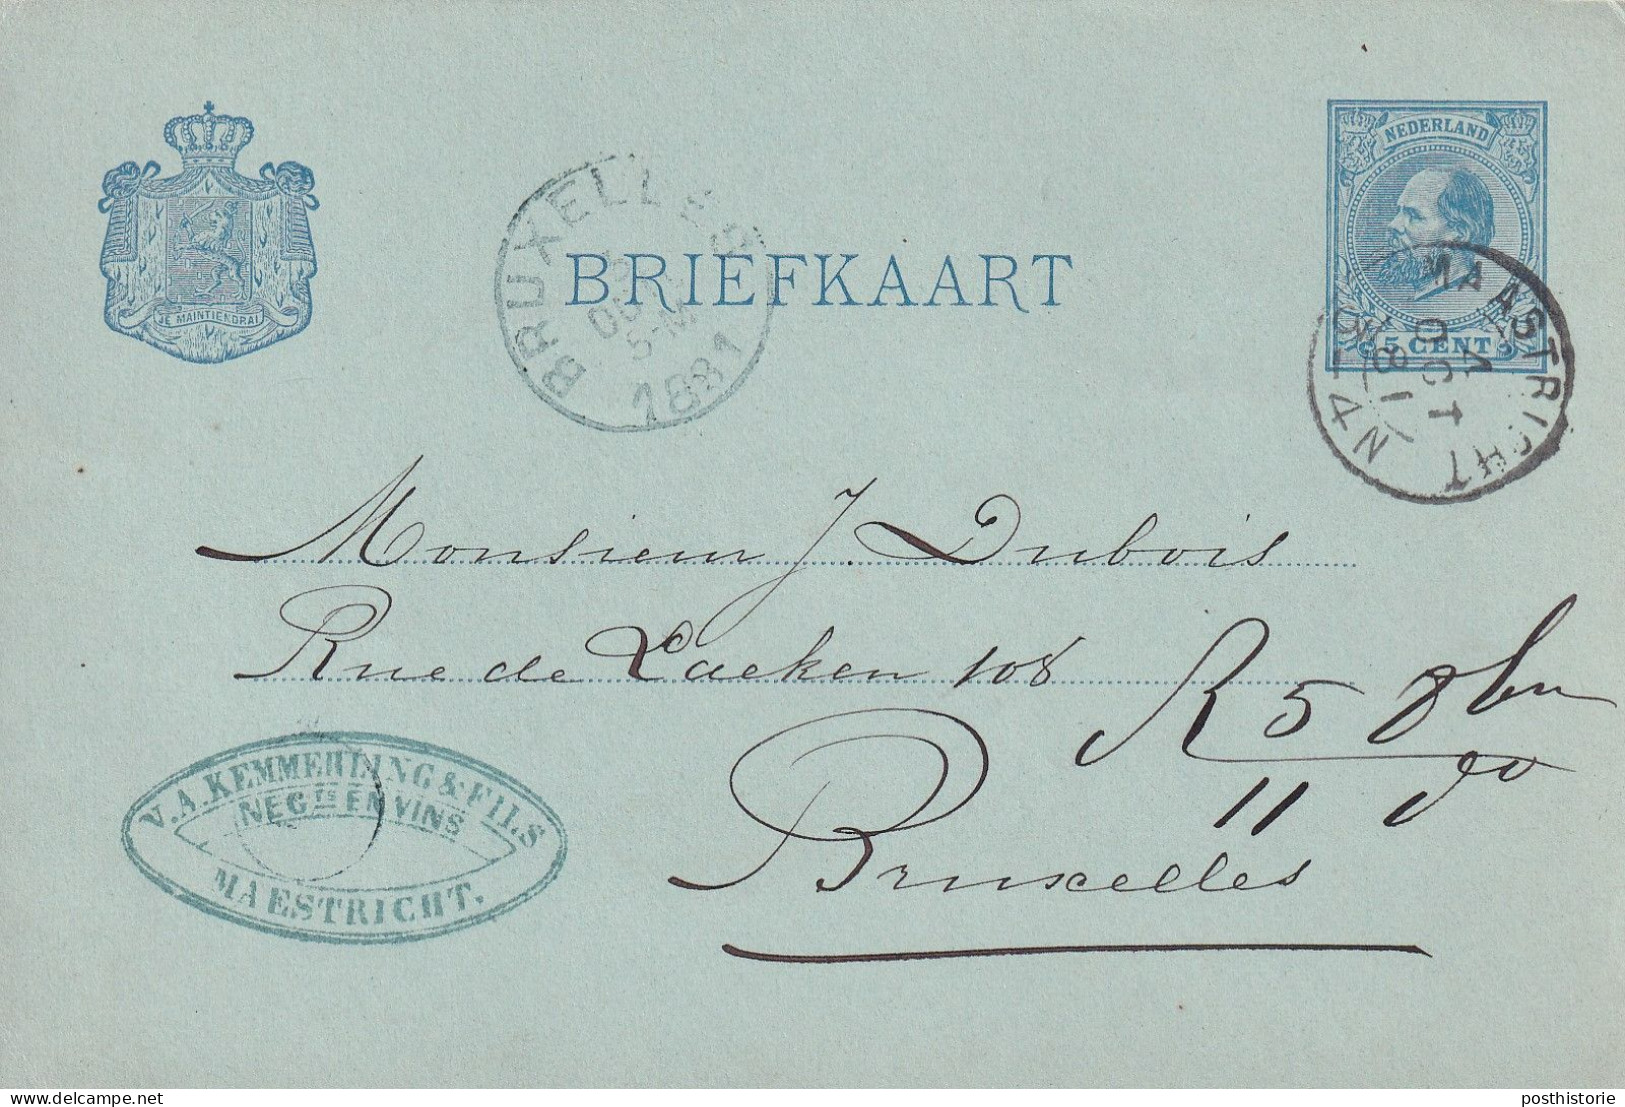 NEDERLAND
JE MAINTIENDRAI
BRIEFKAART
5 CENT
BRUXELLES
5-M
1881
MAASTRICHT
4
OCT
81
3-4N
Monsieur J. Dubois
Rue de Laeken 108
R 5 8bre
11 do
Bruxelles
V.A. KEMMERLING & FILS
NEGTS EN VINS
MAESTRICHT.
posthistorie